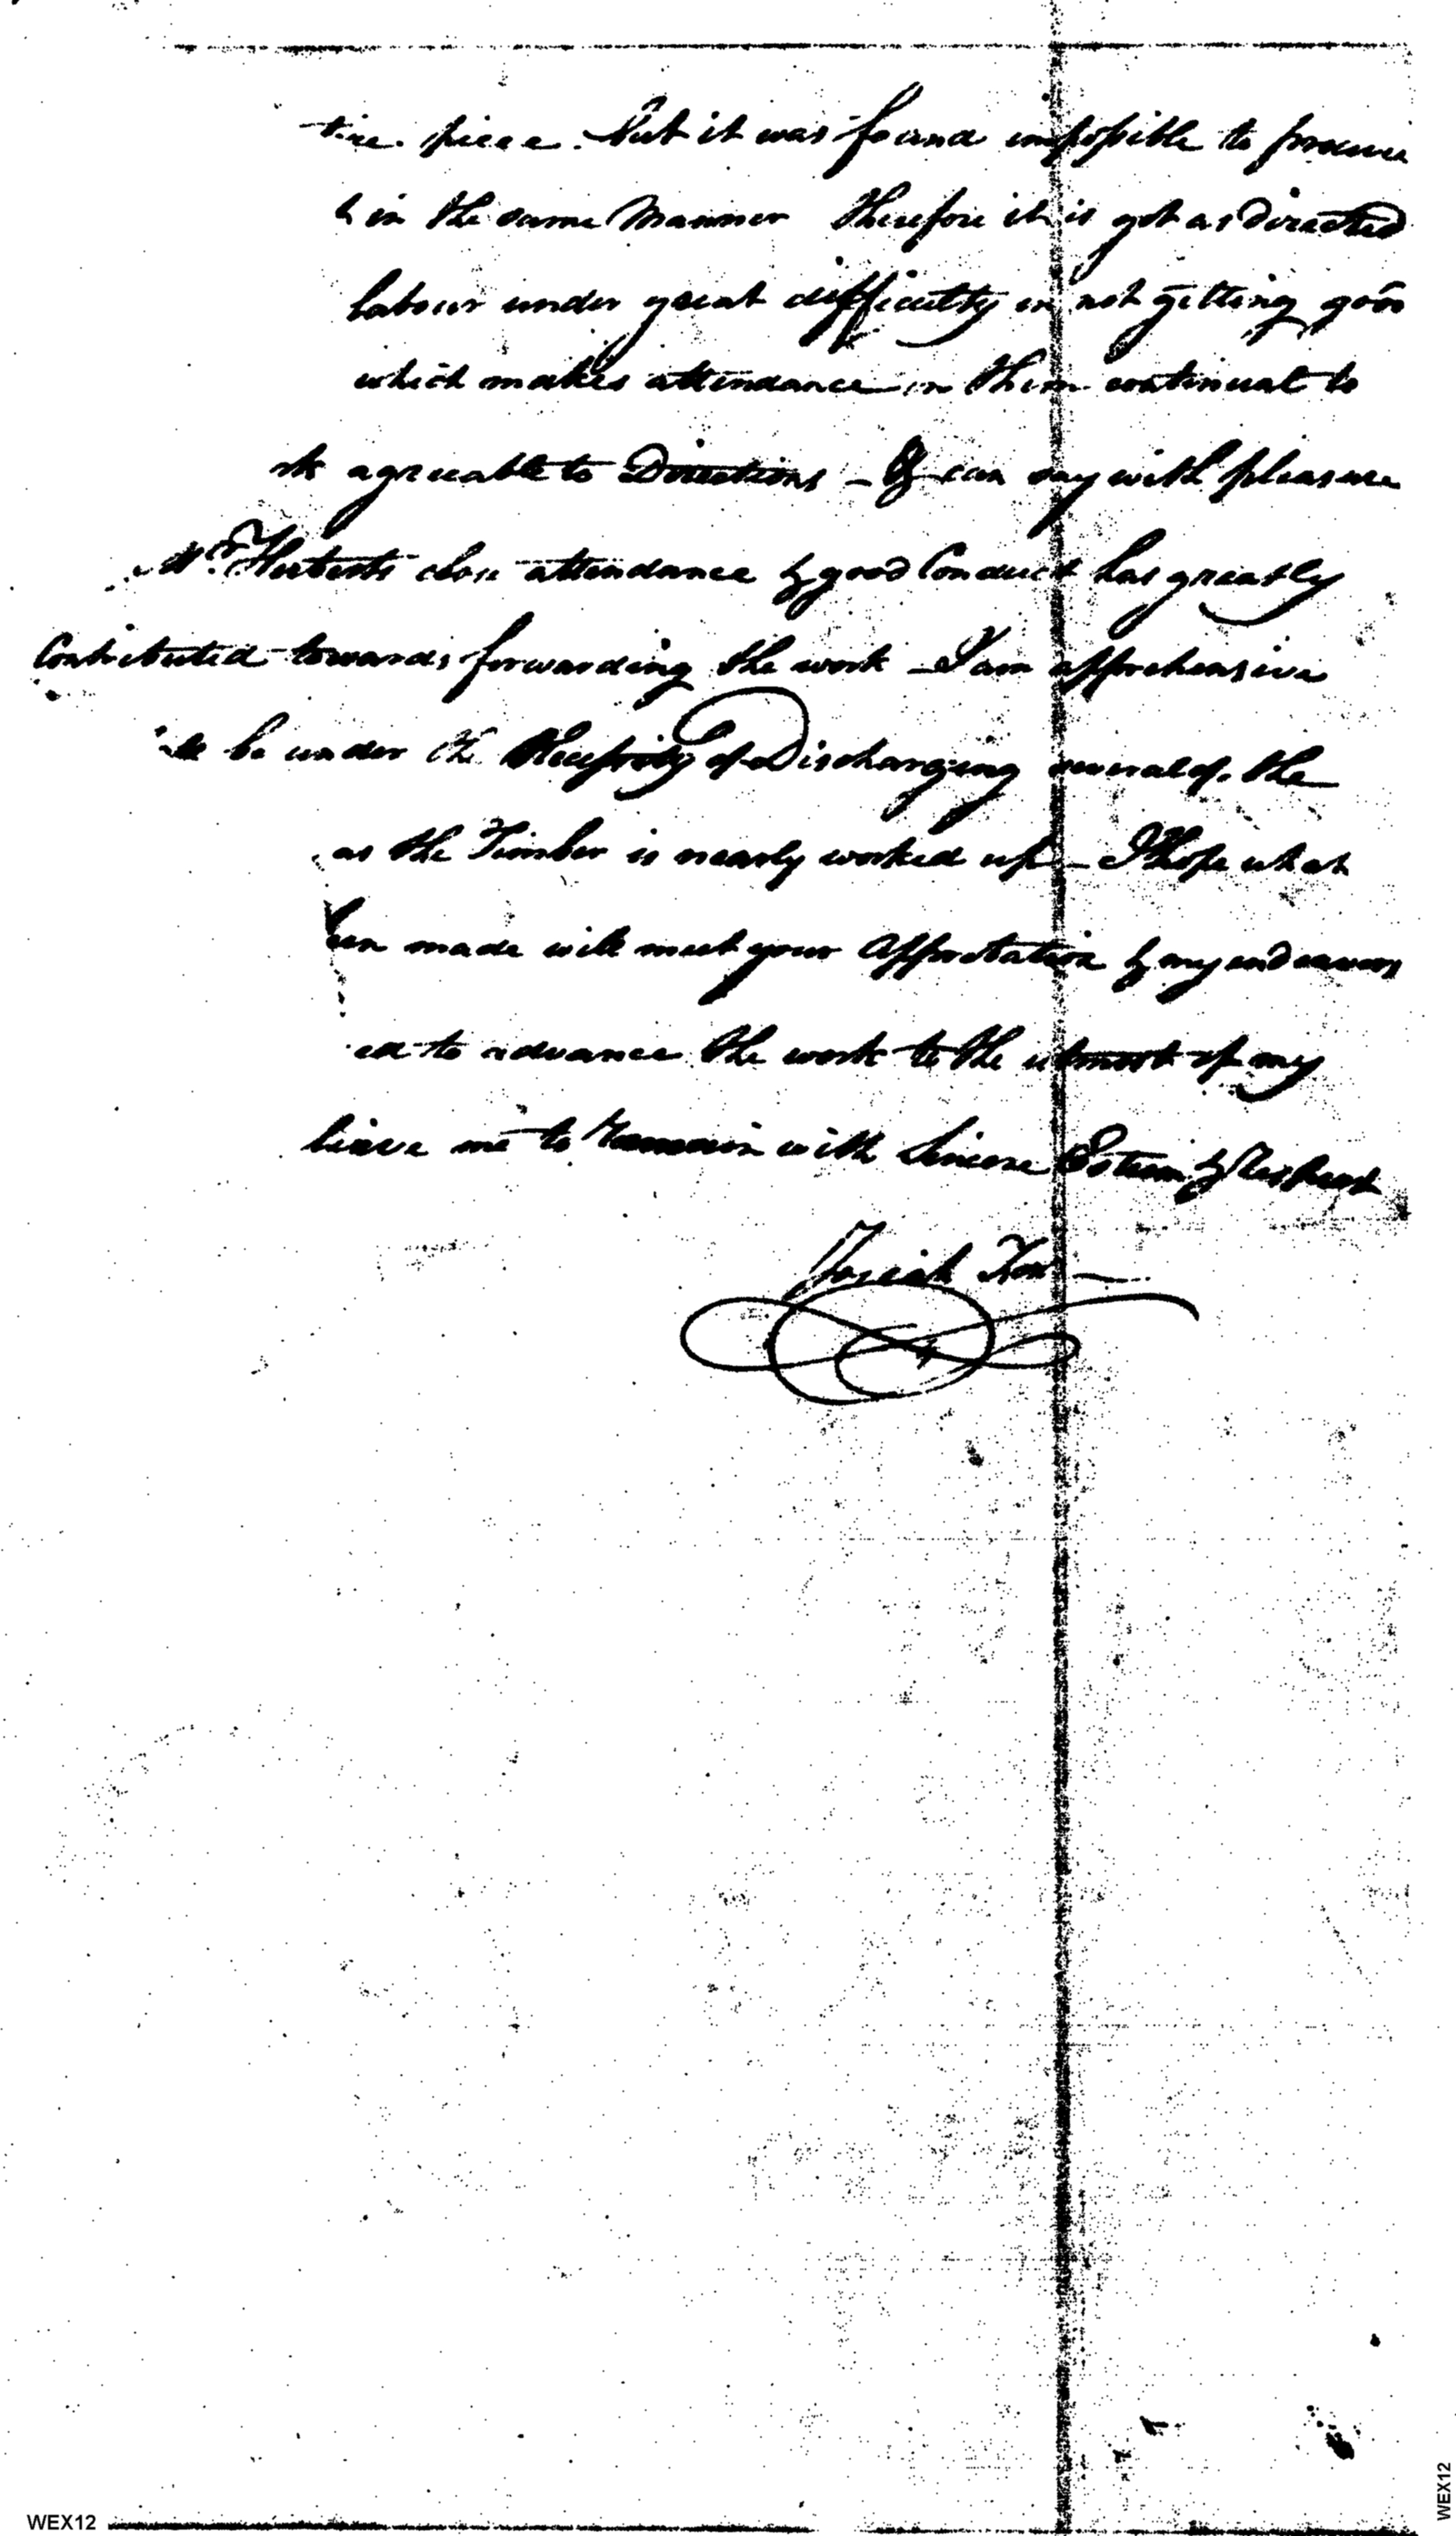 tire piece. But it was found impossible to procure
t in the same Manner Therefore it is got as Directed
labour under great difficulty in not getting good
which makes attendance on them continual to
rk agreeable to Directions - I can say with pleasure
Mr. Herberts close attendance & good Conduct has greatly
Contributed towards forwarding the work - I am apprehensive
be under the Necessity of Discharging several of the
as the Timber is nearly worked up - I hope what
een made will meet your Approbation & my endeavors
ed to advance the work to the utmost of my
lieve me to Remain with Sincere Esteem & Respect
Josiah Fox
WEX12
WEX12